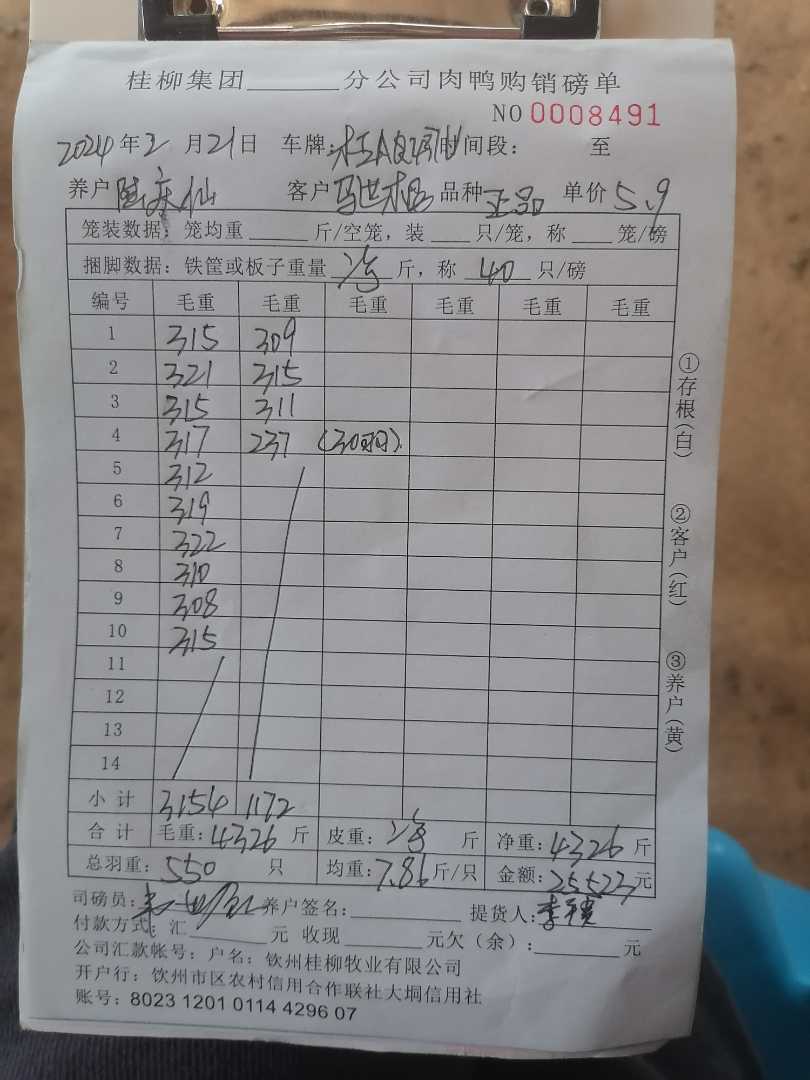 桂柳集团______分公司肉鸭购销磅单
NO 0008491
2024年2月21日 车牌: 时间段: 至
养户 陆庆仙 客户 马世 品种 正品 单价 5.9
笼装数据: 笼均重______斤/空笼，装____只/笼，称____笼/磅
捆脚数据: 铁筐或板子重量 斤，称 40 只/磅
编号 毛重 毛重 毛重 毛重 毛重 毛重
1 315 309
2 321 315
3 315 311
4 317 237 (30羽)
5 312
6 319
7 322
8 310
9 308
10 315
11
12
13
14
小计 3154 1172
合计 毛重: 4326 斤 皮重: 斤 净重: 4326 斤
总羽重: 550 只 均重: 7.86 斤/只 金额: 25523 元
司磅员: 养户签名: 提货人:
付款方式: 汇______元 收现______元欠（余）:______元
公司汇款帐号: 户名: 钦州桂柳牧业有限公司
开户行: 钦州市区农村信用合作联社大垌信用社
账号: 8023 1201 0114 4296 07
①存根(白)
②客户(红)
③养户(黄)